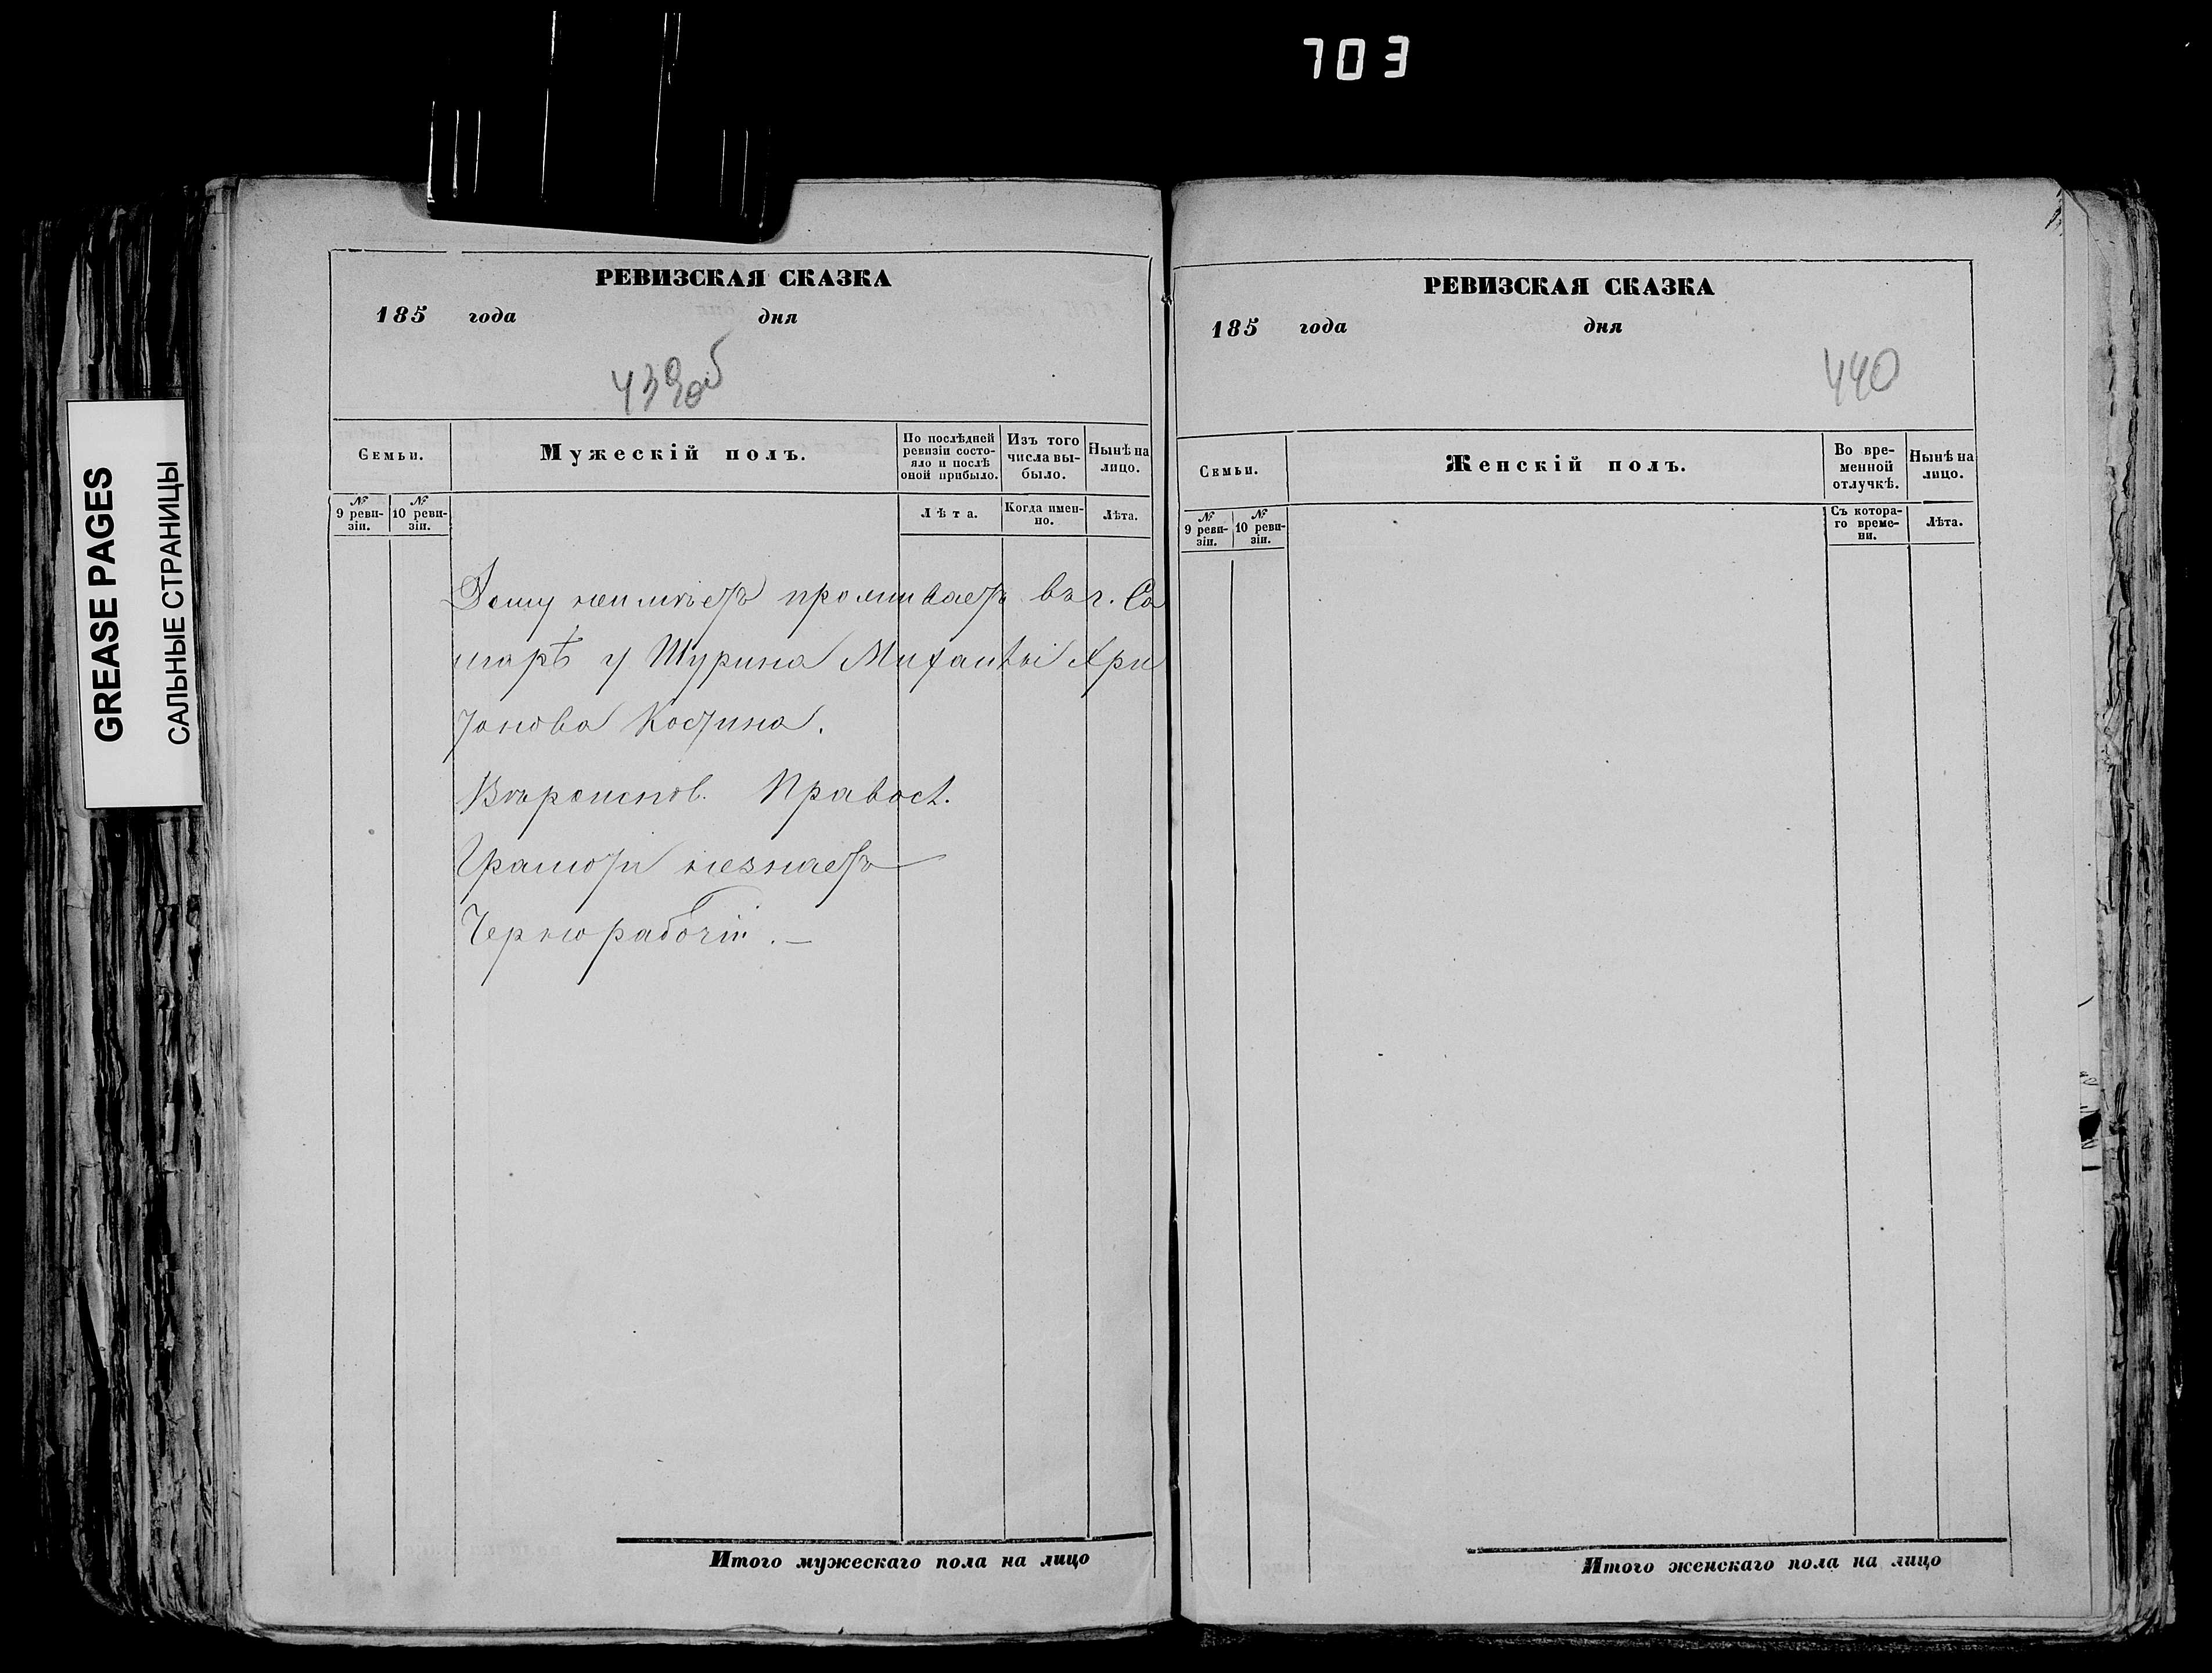 703
GREASE PAGES
САЛЬНЫЕ СТРАНИЦЫ
РЕВИЗСКАЯ СКАЗКА
185 года дня
439об
Семьи.
Мужескій полъ.
По послѣдней ревизіи состо-
яло и послѣ
оной прибыло.
Изъ того
числа вы-
было.
Нынѣ на
лицо.
№
9 реви-
зіи.
№
10 реви-
зіи.
Лѣта.
Когда имен-
но.
Лѣта.
Дому неимѣетъ проживаетъ въ г. Са
марѣ у Шурина Михаилы Хри
тонова Костина.
Вѣроиспов. Правосл.
Грамоти незнаетъ
Чернорабочій. —
Итого мужескаго пола на лицо
РЕВИЗСКАЯ СКАЗКА
185 года дня
440
Семьи.
Женскій полъ.
Во вре-
менной
отлучкѣ.
Нынѣ на
лицо.
№
9 реви-
зіи.
№
10 реви-
зіи.
Съ котора-
го време-
ни.
Лѣта.
Итого женскаго пола на лицо